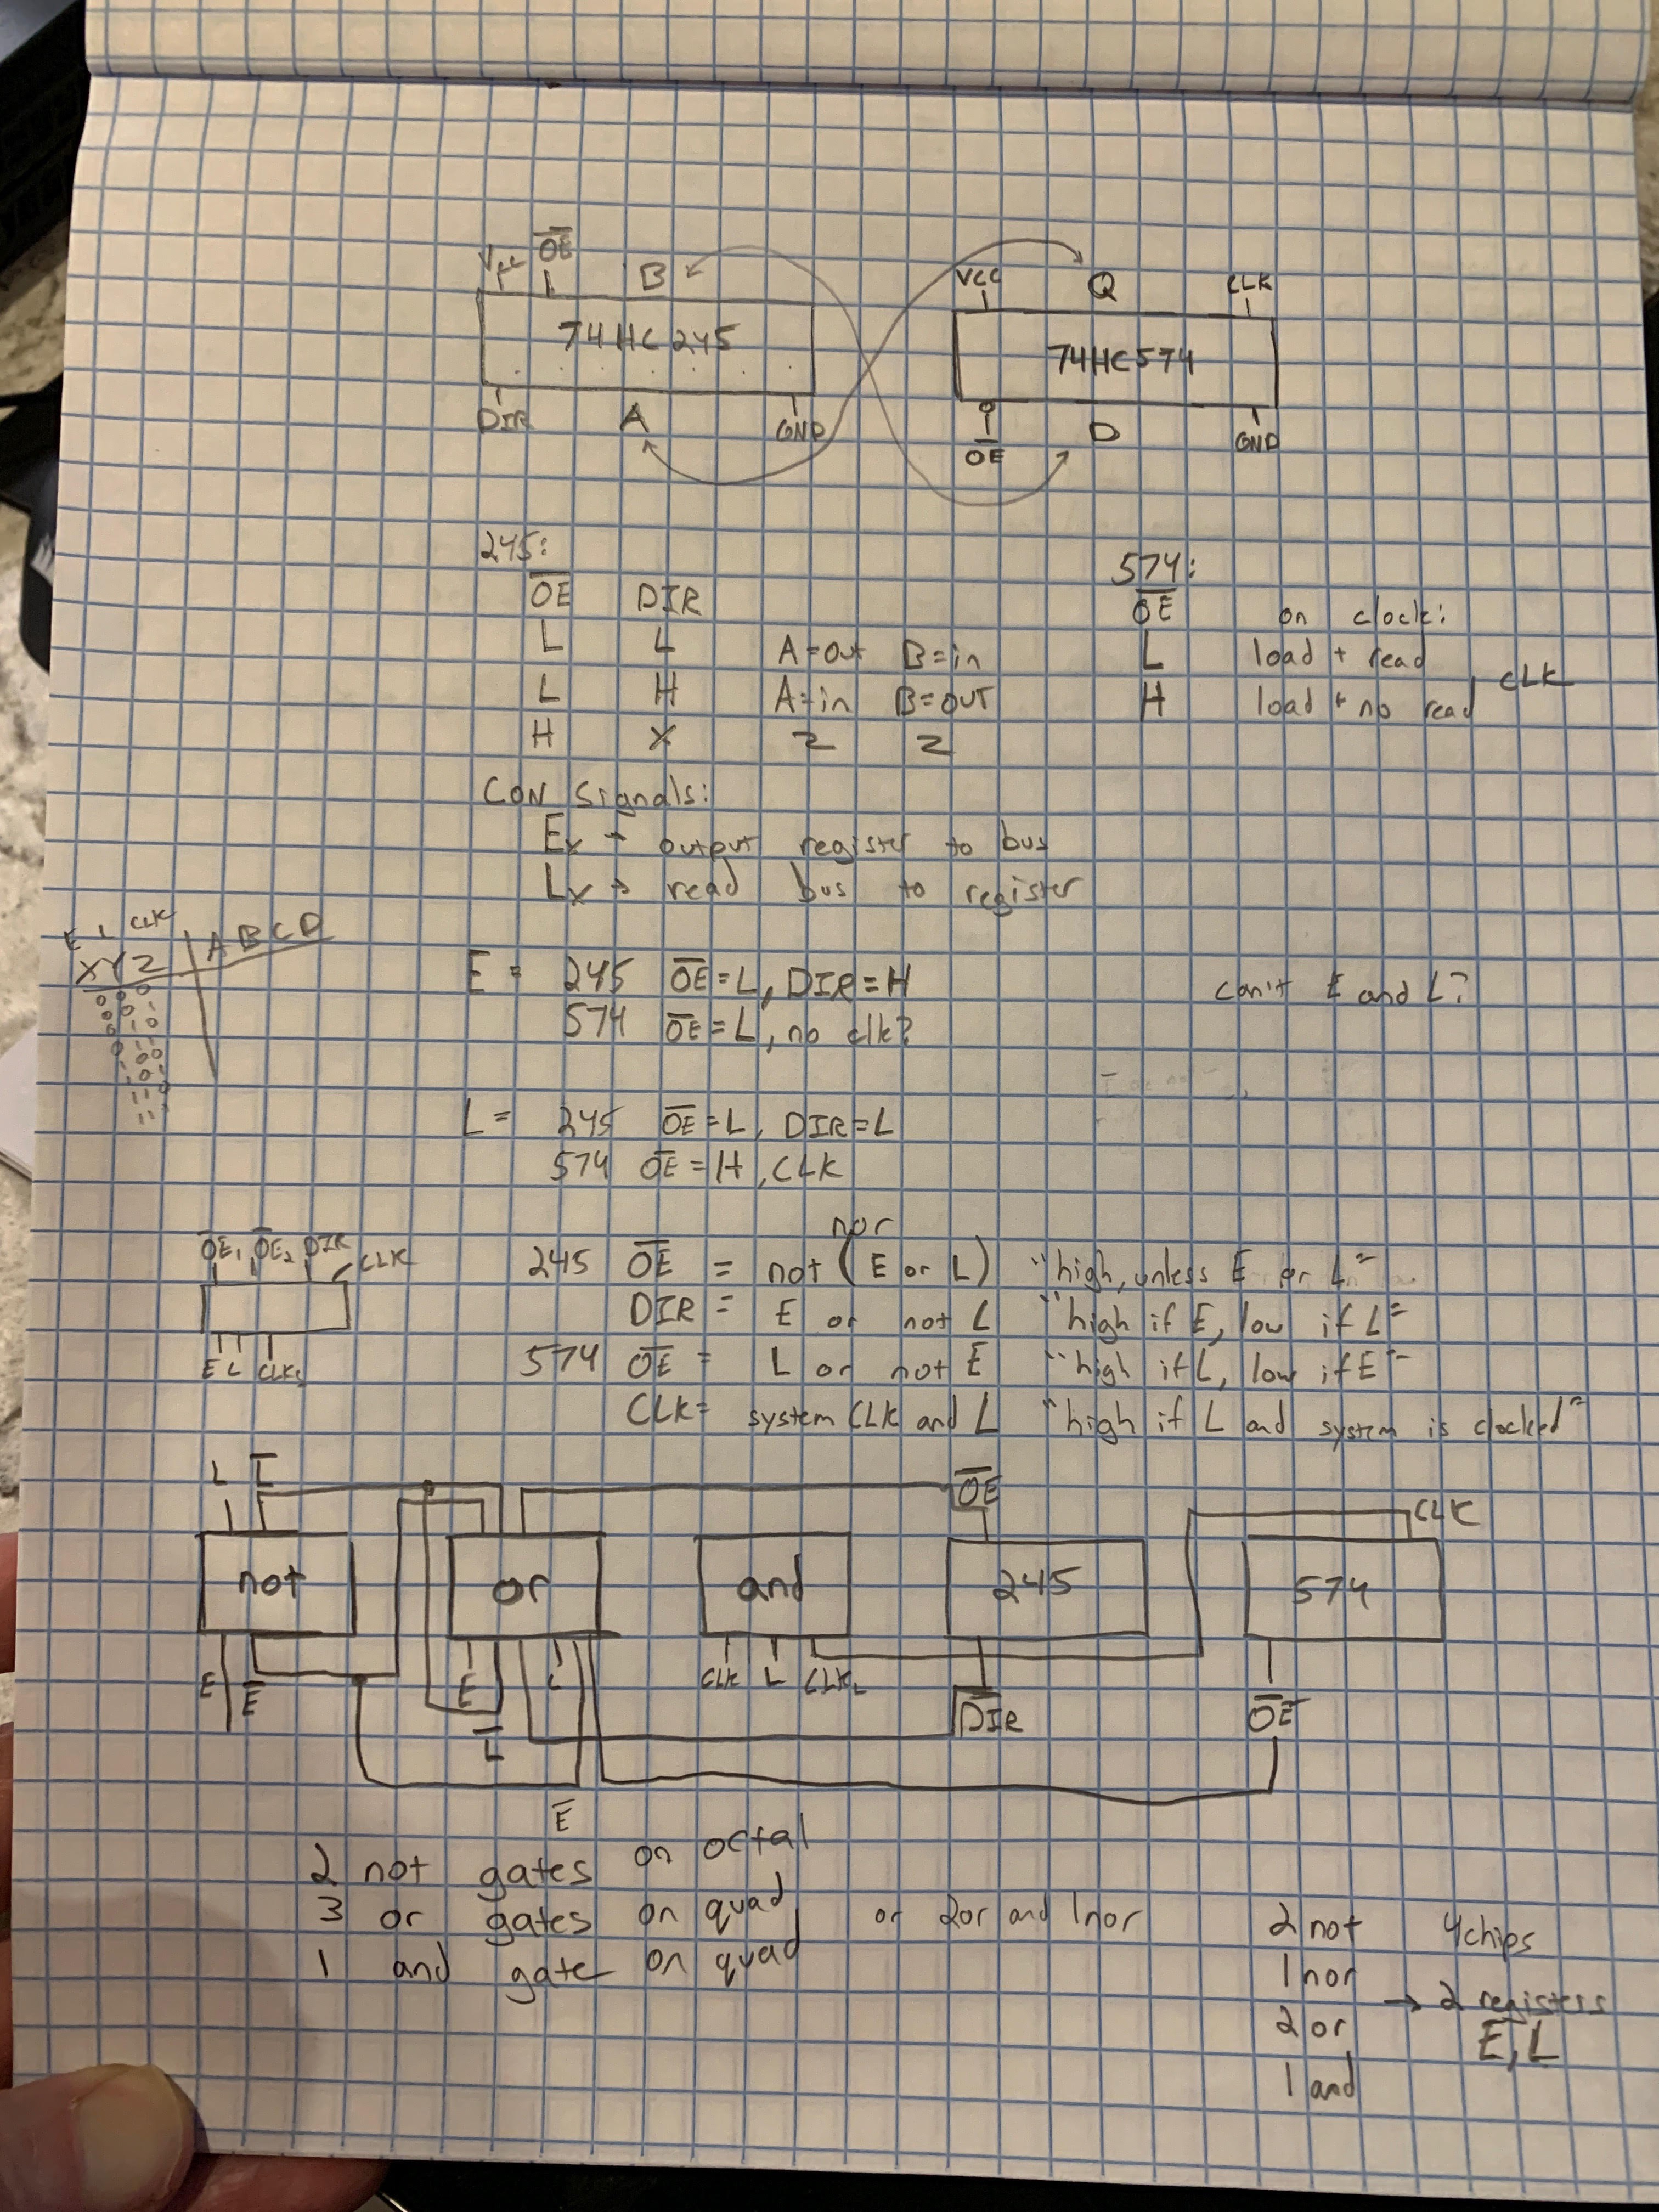 Vcc O̅E̅ B
74HC245
DIR A GND
VCC Q CLK
74HC574
O̅E̅ D GND
245:
O̅E̅ DIR
L L A=out B=in
L H A=in B=out
H X Z Z
574:
O̅E̅ on clock:
L load + read
H load + no read CLK
CON Signals:
Ex → output register to bus
Lx → read bus to register
E L CLK
X Y Z A B C D
E = 245 O̅E̅=L, DIR=H
574 O̅E̅=L, no clk?
can't E and L?
L = 245 O̅E̅=L, DIR=L
574 O̅E̅=H, CLK
O̅E̅₁ O̅E̅₂ DIR CLK
E L CLKs
nor
245 O̅E̅ = not (E or L) "high, unless E or L"
DIR = E or not L "high if E, low if L"
574 O̅E̅ = L or not E "high if L, low if E"
CLK = system CLK and L "high if L and system is clocked"
L L̅ O̅E̅ CLK
not or and 245 574
E E̅ E L CLK L CLKL D̅I̅R̅ O̅E̅
L̅
E̅
2 not gates on octal
3 or gates on quad or 2or and 1nor
1 and gate on quad
2 not 4chips
1 nor → 2 registers
2 or E, L
1 and